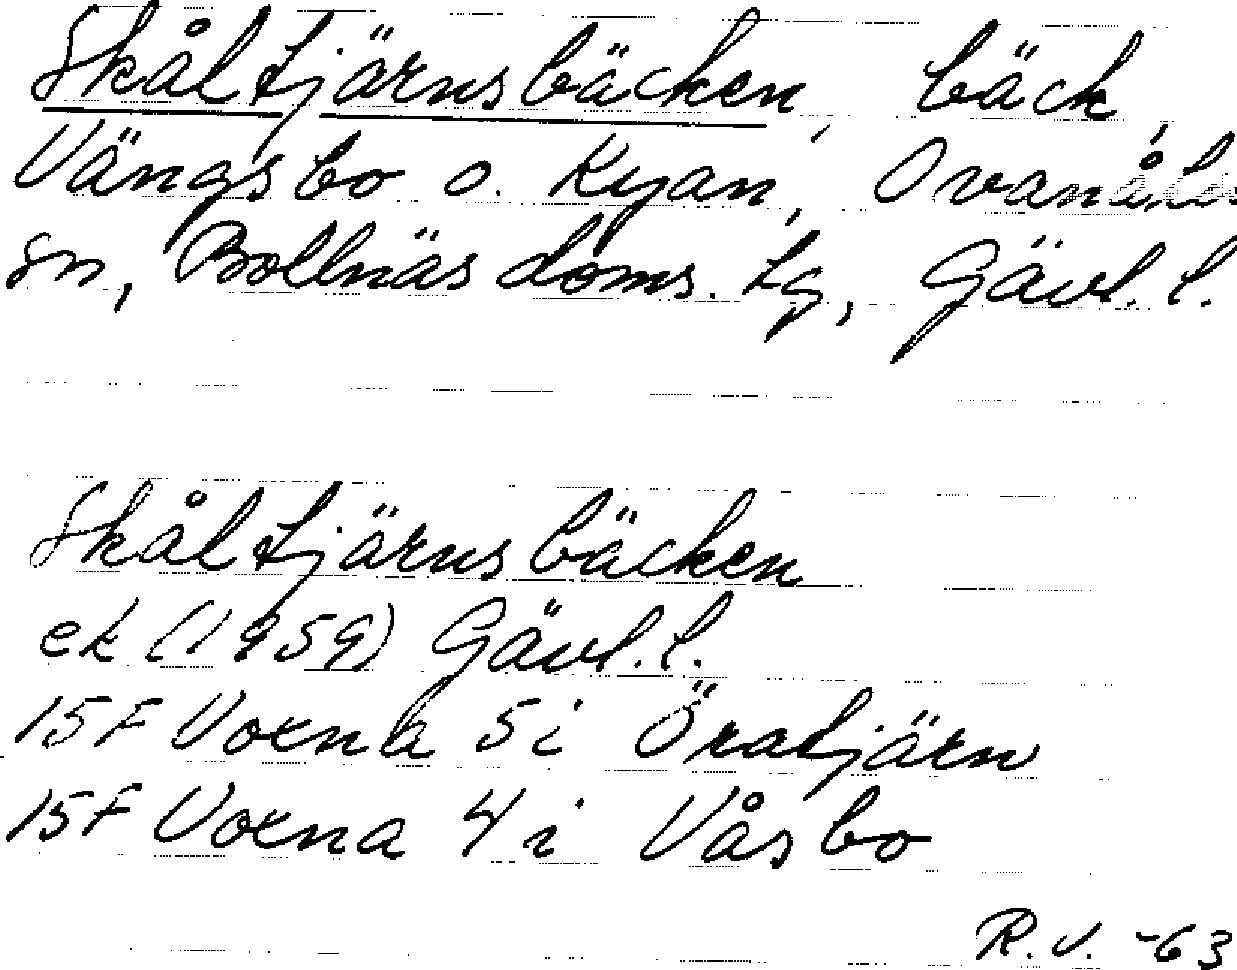 Skåltjärnsbäcken, bäck,
Vängsbo o. Ryan, Ovanåkers
sn, Bollnäs doms. tg, Gävl. l.
Skåltjärnsbäcken
ek (1959) Gävl. l.
15F Voxna 5i Öratjärn
15F Voxna 4i Våsbo
R.V. -63